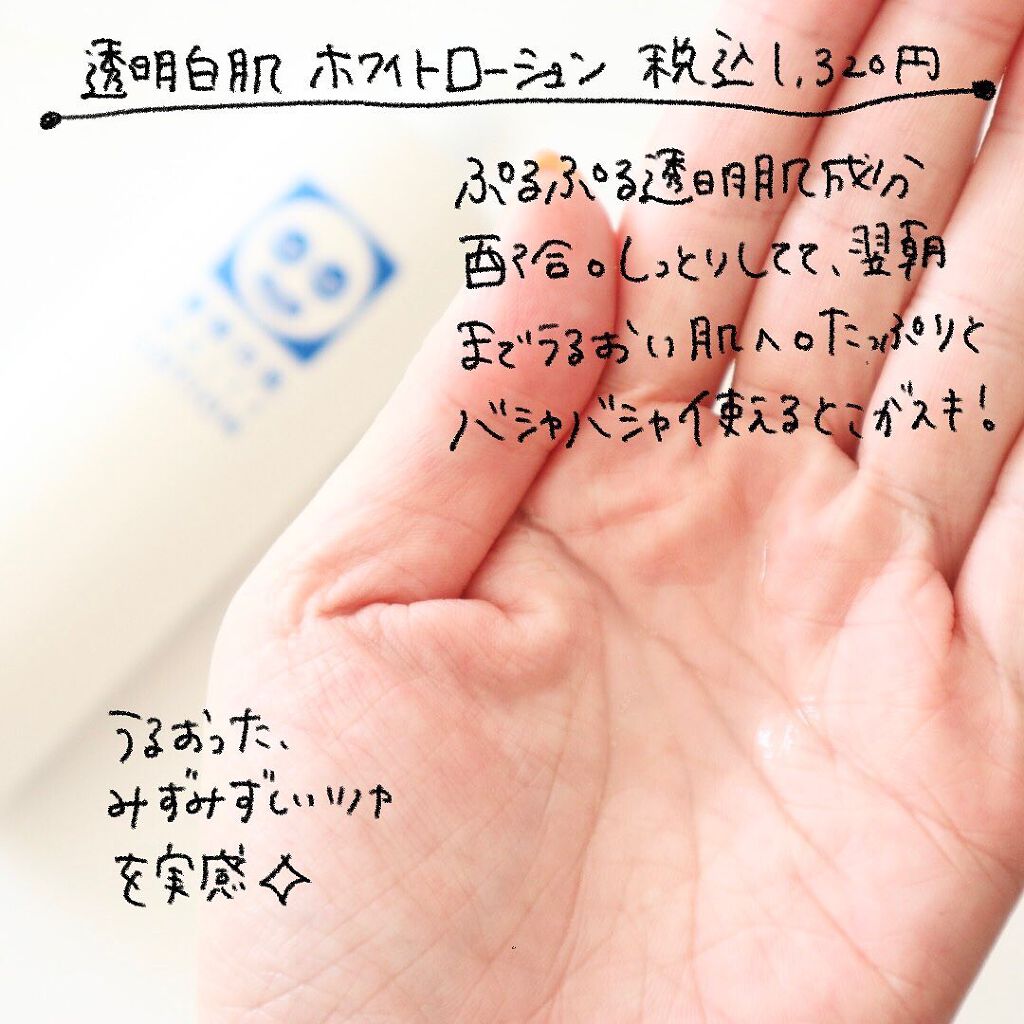 透明白肌 ホワイトローション 税込1,320円
ぷるぷる透明肌成分
配合。しっとりしてて、翌朝
までうるおい肌へ。たっぷりと
バシャバシャイ使えるとこがスキ!
うるおった、
みずみずしいツヤ
を実感